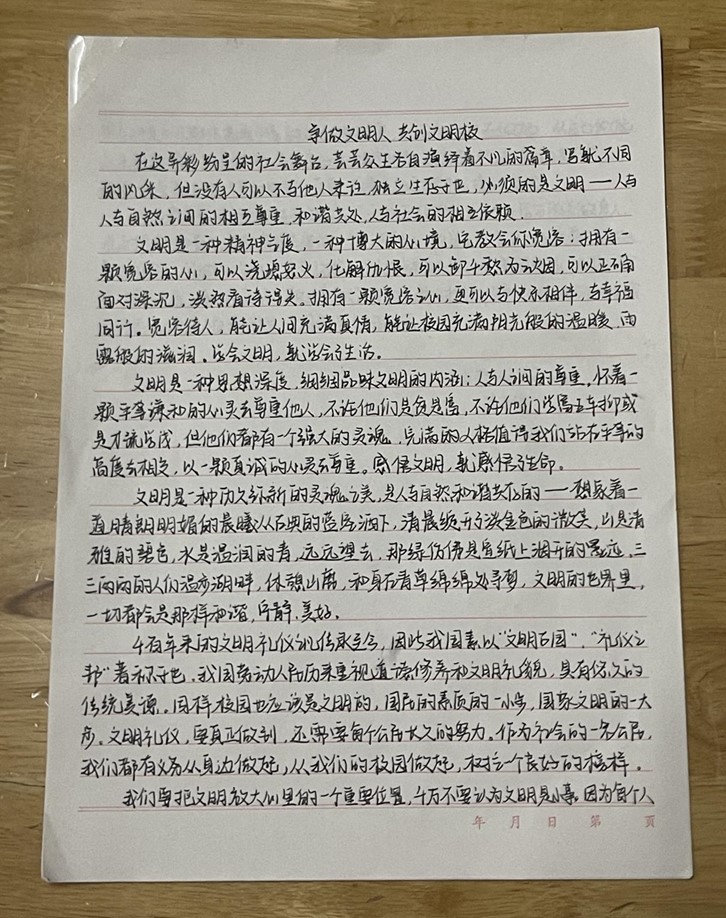 争做文明人 共创文明校
在这异彩纷呈的社会舞台，芸芸众生各自演绎着不凡的篇章，呈献不同
的风采，但没有人可以不与他人来往，独立生存于世，必须的是文明——人与
人与自然之间的相互尊重，和谐共处，人与社会的相互依赖．
文明是一种精神气度，一种博大的心境，它教会你宽容：拥有一
颗宽容的心，可以浇熄怒火，化解仇恨，可以卸千愁为云烟，可以正确
面对深沉，淡然看待得失．拥有一颗宽容之心，更可以与快乐相伴，与幸福
同行。宽容待人，能让人间充满真情，能让校园充满阳光般的温暖，雨
露般的滋润。学会文明，就学会了生活。
文明是一种思想深度，细细品味文明的内涵；人与人之间的尊重，怀着一
颗平等谦和的心灵去尊重他人，不论他们是贫是富，不论他们学富五车抑或
是才疏学浅，但他们都有一个强大的灵魂，完满的人格值得我们站在平等的
高度去相交，以一颗真诚的心灵去尊重。感悟文明，就感悟了生命。
文明是一种历久弥新的灵魂之美，是人与自然和谐共存的——想象着一
道晴朗明媚的晨曦从古典的蓝空洒下，清晨绽开了淡金色的微笑，山是清
雅的碧色，水是温润的青，远远望去，那绿仿佛是宣纸上洇开的墨迹．三
三两两的人们漫步湖畔，休憩山麓，和身在青草绵绵处寻梦，文明的世界里，
一切都会是那样和谐，宁静，美好．
千百年来的文明礼仪代代传承至今，因此我国素以“文明古国”，“礼仪之
邦”著称于世。我国劳动人民历来重视道德修养和文明礼貌，具有悠久的
传统美德。同样校园也应该是文明的，国民的素质的一小步，国家文明的一大
步．文明礼仪，要真正做到，还需要每个公民长久的努力。作为社会的一名公民，
我们都有义务从身边做起，从我们的校园做起，树立一个良好的榜样．
我们要把文明放大心里的一个重要位置，千万不要认为文明是小事．因为每个人
年 月 日 第 页